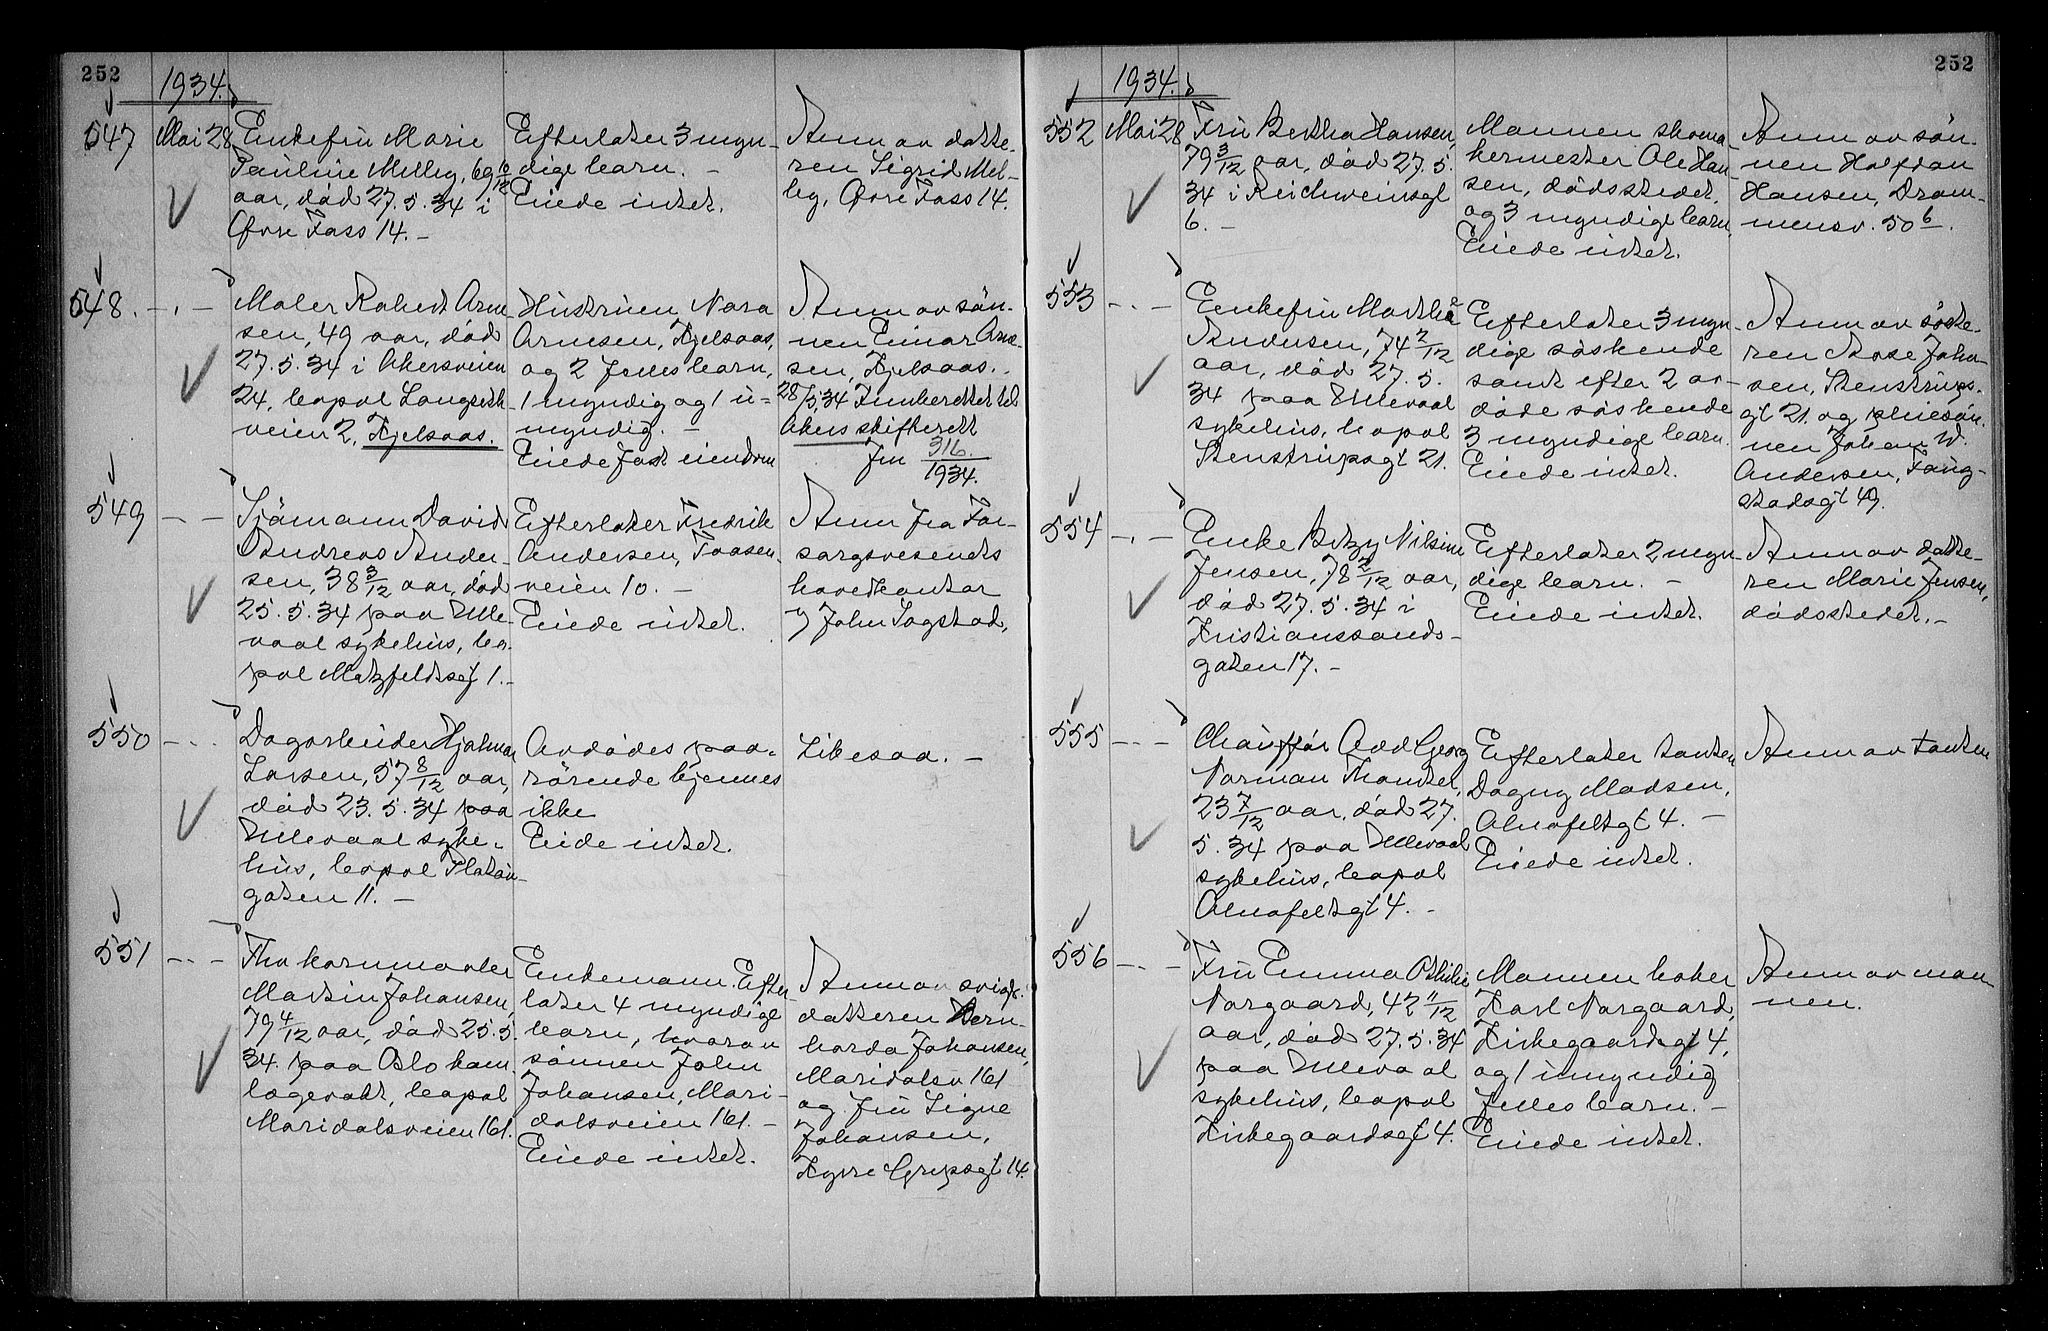 252
1934.
547
Mai 28
Enkefru Marie
Pauline Melby, 69 6/12
aar, død 27.5.34 i
Øvre Foss 14. –
Efterlater 3 myn-
dige barn. –
Eiede intet.
Anm av datte-
ren Sigrid Mel-
by, Øvre Foss 14.
548. – . –
Maler Robert Arne-
sen, 49 aar, død
27.5.34 i Akersveien
24, bopel Langseth-
veien 2, Kjelsaas.
Hustruen Nora
Arnesen, Kjelsaas,
og 2 felles barn,
1 myndig og 1 u-
myndig. –
Eiede fast eiendom
Anm av søn-
nen Einar Arne-
sen, Kjelsaas.
28/5.34 Innberettet til
Akers skifterett
Jnr 316/1934.
549 – –
Sjømann David
Andreas Ander-
sen, 38 3/12 aar, død
25.5.34 paa Ulle-
vaal sykehus, bo-
pel Matzfeldtsgt 1. –
Efterlater Fredrik
Andersen, Traasen-
veien 10. –
Eiede intet.
Anm fra For-
sorgsvesenets
hovedkontor
v John Sogstad,
550 – . .
Dagarbeider Hjalmar
Larsen, 57 8/12 aar,
død 23.5.34 paa
Ullevaal syke-
hus, bopel Platou-
gaten 11. –
Avdødes paa-
rørende kjennes
ikke
Eide intet.
Likesaa. –
551 – . –
Fhv kornmaaler
Martin Johansen,
79 4/12 aar, død 25.5.
34. paa Oslo kom.
lægevakt, bopel
Maridalsveien 161.
Enkemann. Efter-
later 4 myndige
barn, hvorav
sønnen John
Johansen, Mari-
dalsveien 161. –
Eiede intet.
Anm av sviger-
datteren Bern-
harda Johansen,
Maridalsv 161
og fru Signe
Johansen,
Kyrre Grepsgt 14.
252
1934.
552
Mai 28
Fru Bertha Hansen,
79 3/12 aar, død 27.5.
34 i Reichweinsgt
6. –
Mannen skoma-
kermester Ole Han-
sen, dødsstedet,
og 3 myndige barn,
Eiede intet.
Anm av søn-
nen Halfdan
Hansen, Dram-
mensv. 50 b.
553 – . –
Enkefru Marthea
Andersen, 74 2/12
aar, død 27.5.
34 paa Ullevaal
sykehus, bopel
Stenstrupsgt 21.
Efterlater 3 myn-
dige søskende
samt efter 2 av-
døde søskende
3 myndige barn.
Eiede intet.
Anm av søste-
ren Rose Johan-
sen, Stenstrups-
gt 21. og pleiesøn-
nen Johan W.
Andersen, Faug-
stadsgt 49.
554 – . –
Enke Betzy Nilsine
Jensen, 78 2/12 aar,
død 27.5.34 i
Kristianssands-
gaten 17. –
Efterlater 2 myn-
dige barn. –
Eiede intet.
Anm av datte-
ren Marie Jensen,
dødsstedet. –
555 – . –
Chauffør Odd Georg
Norman Thomter,
23 7/12 aar, død 27.
5.34 paa Ullevaal
sykehus, bopel
Alnafeltgt 4. –
Efterlater tanten
Dagny Madsen,
Alnafeltgt 4. –
Eiede intet.
Anm av tanten
556 – . –
Fru Emma Othilie
Norgaard, 42 11/12
aar, død 27.5.34
paa Ullevaal
sykehus, bopel
Kirkegaardsgt 4.
Mannen baker
Karl Norgaard,
Kirkegaardsgt 4,
og 1 umyndig
felles barn. –
Eiede intet.
Anm av man-
nen.